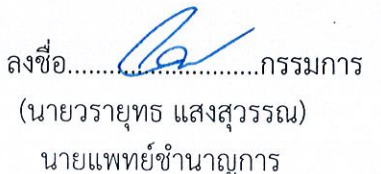 ลงชื่อ..............................กรรมการ
(นายวรายุทธ แสงสุวรรณ)
นายแพทย์ชำนาญการ